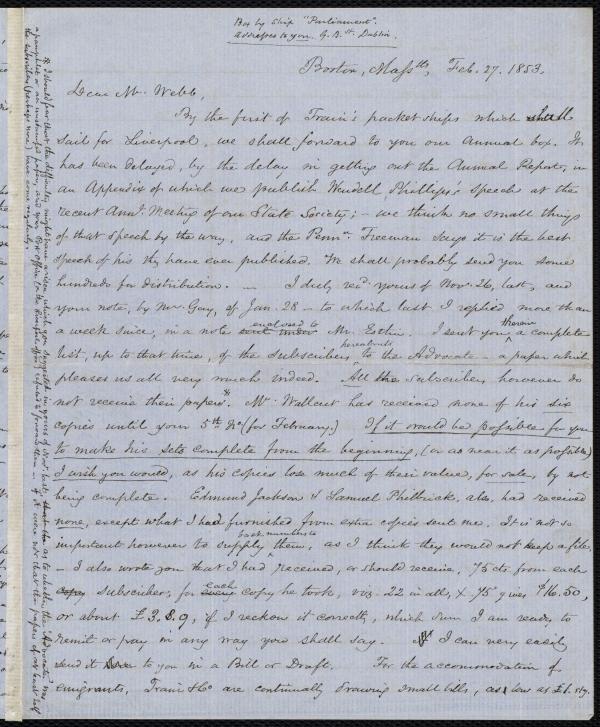 Box by Ship "Parliament".
Addresses to you. G. B. St. Dublin.
Boston, Massts, Feb. 27. 1853.
Dear Mr. Webb,
By the first of Train's packet ships which shall
sail for Liverpool, we shall forward to you our Annual box. It
has been delayed, by the delay in getting out the Annual Report, in
an Appendix of which we publish Wendell Phillips's speech at the
recent Annl. Meeting of our State Society; – we think no small things
of that speech by the way, and the Penna. Freeman says it is the best
speech of his they have ever published. We shall probably send you some
hundreds for distribution. — I duly recd. yours of Nov. 26, last, and
your note, by Mr. Gay, of Jan. 28 – to which last I replied more than
a week since, in a note enclosed to Mr. Estlin. I sent you therein a complete
list, up to that time, of the subscribers hereabouts to the Advocate – a paper which
pleases us all very much indeed. All the subscribers however do
not receive their papers.* Mr. Wallcut has received none of his six
copies until your 5th No. (for February.) If it would be possible for you
to make his sets complete from the beginning, (or as near it as possible)
I wish you would, as his copies lose much of their value, for sale, by not
being complete. Edmund Jackson & Samuel Philbrick, also, had received
none, except what I had furnished from extra copies sent me. It is not so
important however to supply them back numbers, as I think they would not keep a file.
– I also wrote you that I had received, or should receive, 75 cts. from each
copy subscriber, for each copy he took, viz. 22 in all, x .75 gives $16.50,
or about £3.8.9, if I reckon it correctly, which sum I am ready to
remit or pay in any way you shall say. I can very easily
send it to you in a Bill or Draft. For the accommodation of
emigrants, Train & Co are continually drawing small bills, as low as £1. stg.
* I should fear that the difficulty might have arisen, which you suggested in yours of Nov. last, as to whether the Advocate was
a pamphlet or an unstamped paper, and your Post Office (or the Liverpool office) refused to forward them – if it were not that the papers of at least half
the subscribers (perhaps more) have come regularly.